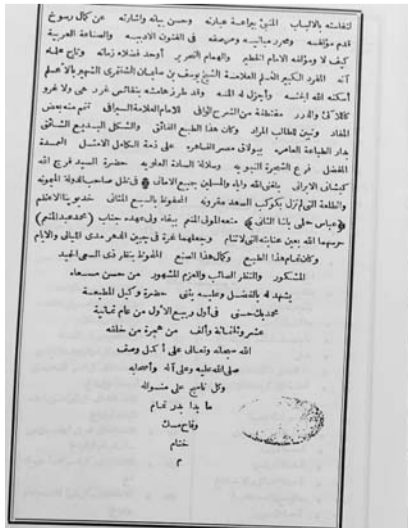 لنفاسته بالالباب المنبئ ببراعة عبارته وحسن بيانه واشارته عن كمال رسوخ
قدم مؤلفه ومحرر مبانيه ومرصفه فى الفنون الادبيه والصناعة العربية
كيف لا ومؤلفه الامام الخطير والهمام النحرير أوحد فضلاء زمانه وتاج علماء
آنه المفرد الكبير العلم العلامة الشيخ يوسف بن سليمان الشنتمرى الشهير بالأعلم
أسكنه الله الجنه وأجزل له المنه وقد طرز هامشه بنفائس غرر هى ولا غرو
كاللآلئ والدرر مقتطفة من الشرح الوافى للامام العلامة السيرافى تتم منه بعض
المفاد وتبين للطالب المراد وكان هذا الطبع الفائق والشكل البديع الشائق
بدار الطباعة العامره ببولاق مصر القاهره على ذمة الكامل الامثل العمدة
المفضل فرع الشجرة النبويه وسلالة السادة العلويه حضرة السيد فرج الله
كيشانى الايرانى بلغنى الله واياه والمسلمين جميع الامانى فى ظل صاحب الدولة المهيبه
والطلعة التى لم تزل بكوكب السعد مقرونه المحفوظ بالسبع المثانى خديوينا الاعظم
(عباس حلمى باشا الثانى) متعه المولى المنعم ببقاء ولى عهده جناب (محمد عبد المنعم)
حرسهما الله بعين عنايته التى لا تنام وجعلهما غرة فى جبين الدهر مدى الليالى والايام
وكان تمام هذا الطبع وكمال هذا الصنع الملحوظ بنظر ذى السعى الحميد
المشكور والنظر الصائب والعزم المشهور من حسن مسعاه
يشهد له بالفضل وعليه يثنى حضرة وكيل المطبعة
محمد بك حسنى فى أول ربيع الأول من عام ثمانية
عشر وثلثمائة وألف من هجرة من خلقه
الله سبحانه وتعالى على أكمل وصف
صلى الله عليه وعلى آله وأصحابه
وكل ناسج على منواله
ما بدا بدر تمام
وفاح مسك
ختام
م